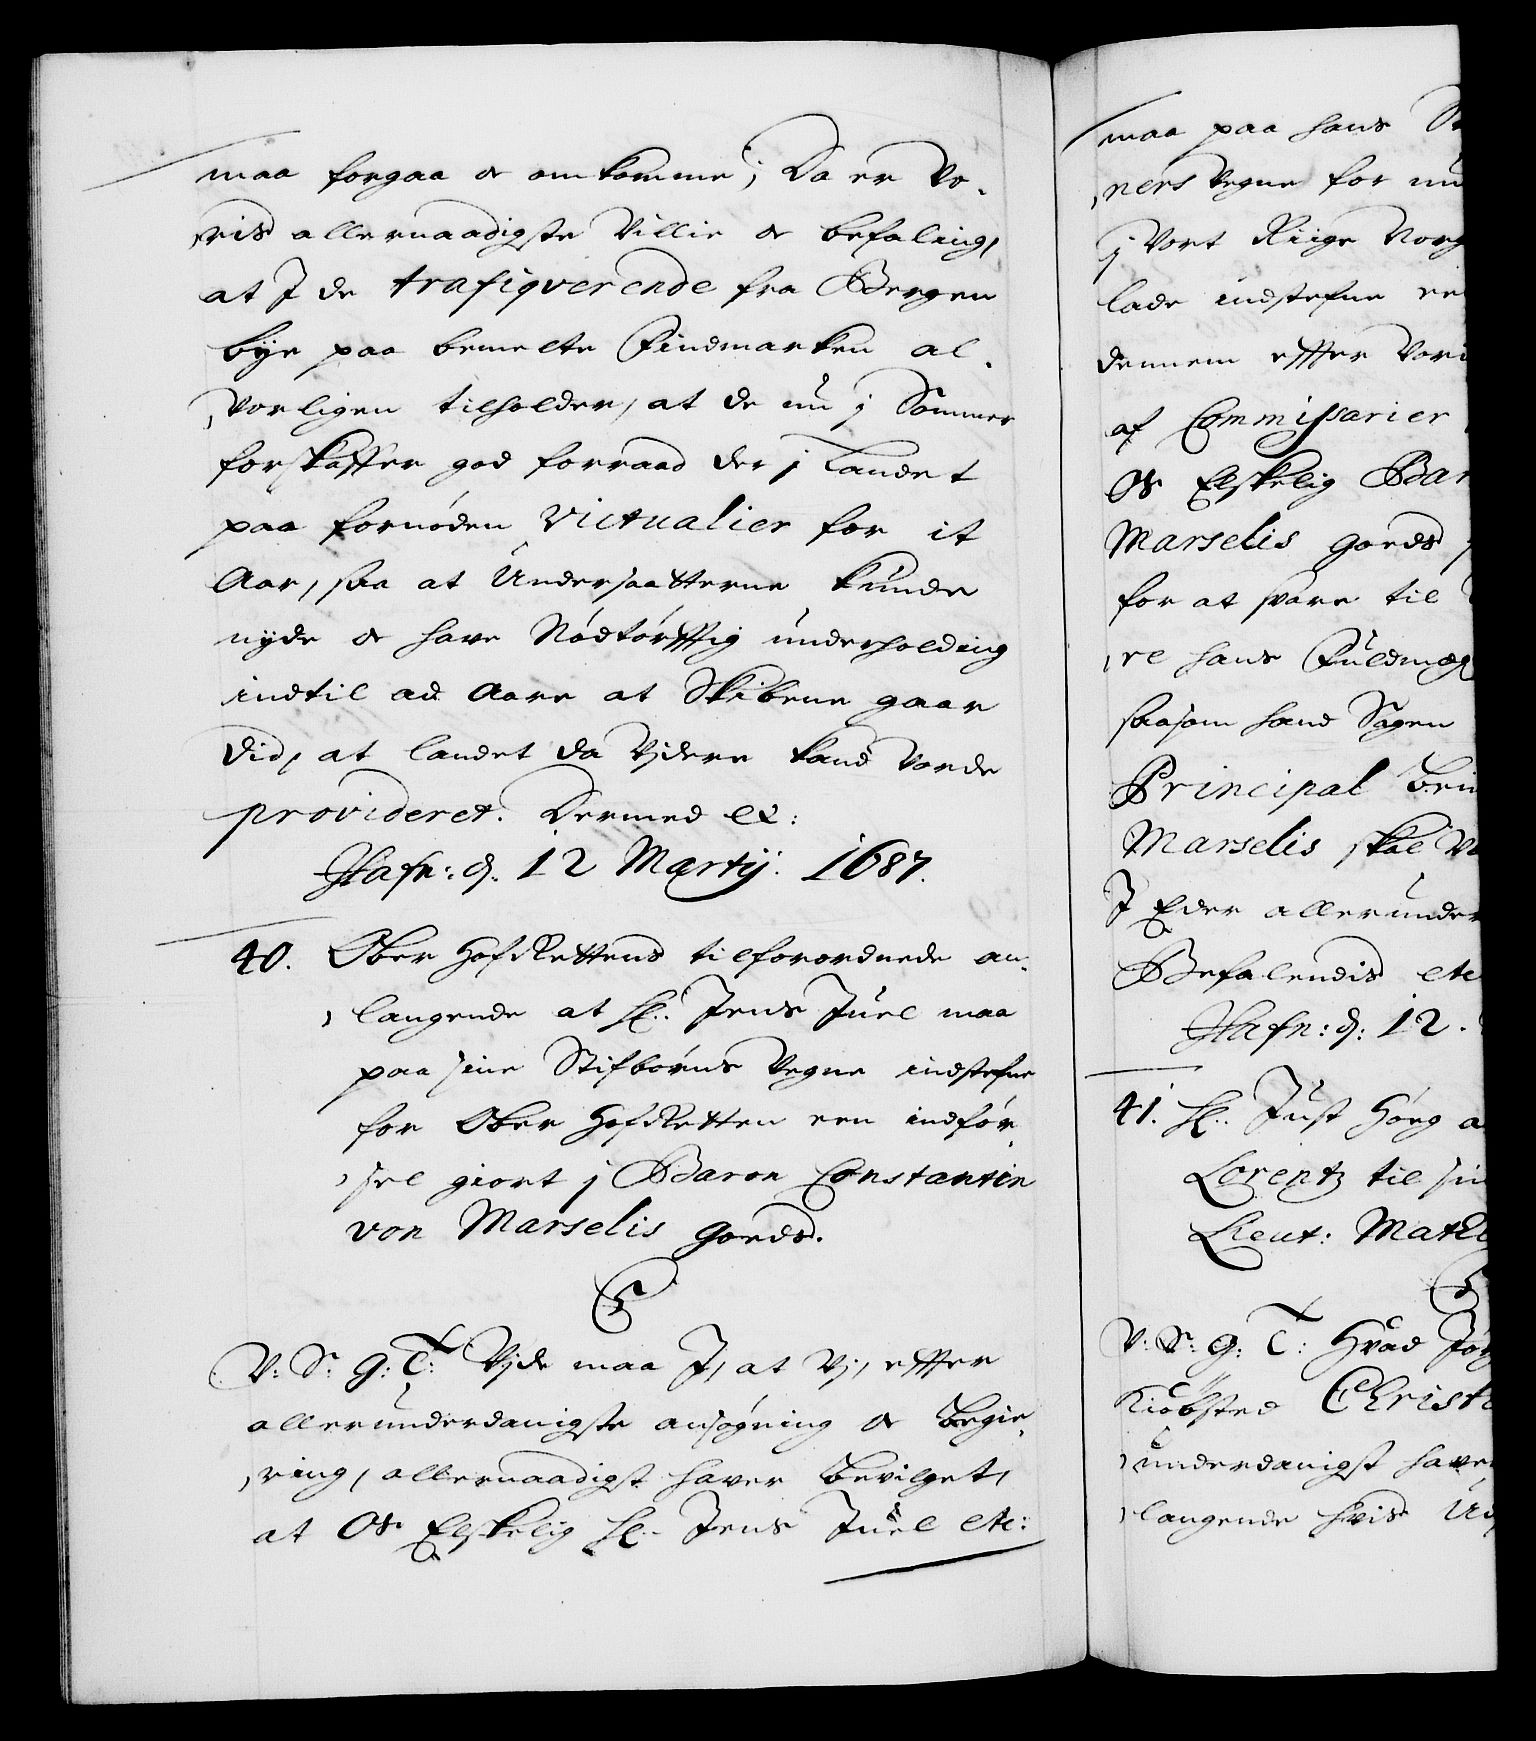 maa forgaa oc omkomme; Da er Vo-
,ris allernaadigste Villie oc befaling,
at I de trafiqverende fra Bergen
bÿe paa bemelte Findmarken al-
,vorligen tilholder, at de nu j Sommer
forskaffer god forraad der j Landet
paa fornøden Victualier for it
Aar, saa at Undersaatterne kunde
nyde oc have Nødtørfftig underholding
indtil ad Aare at Skibene gaar
did, at landet da Vjdere kand vorde
provideret. Dermed etc:
Hafn: d. 12 Martij. 1687.
40. Ober HofRettens tilforordnede an-
,langende at Hr. Jens Juel maa
paa sine Stifbørns Vegne indstefne
for Ober HofRetten een indfør-
,sel giort j Baron Constantin
von Marselis Goeds.
C5
V: S: G: T: Vjde maa I, at Vj, effter
allerunderdanigste ansøgning oc Begie-
,ring, allernaadigst haver bevilget,
at Os Elskelig Hr. Jens Juel etc:
maa paa hans St
,ners Vegne for nu
j Vort Riige Norg
lade indstefne ee
dennem effter Vori
af Commissarier
Os Elskelig Bar
Marselis Goeds
for at svare til
,re hans Fuldmæg
saasom hand Sagen
Principal
Marselis skal V
I Eder allerunder
Befalendis etc
Hafn: d: 12.
41. Hr. Just Høeg a
Lorentz til sin
Lieut: Math
C
V: S: G: T: Hvad Jør
Kiøbsted Christi
,underdanigst have
,langende hvis Ud